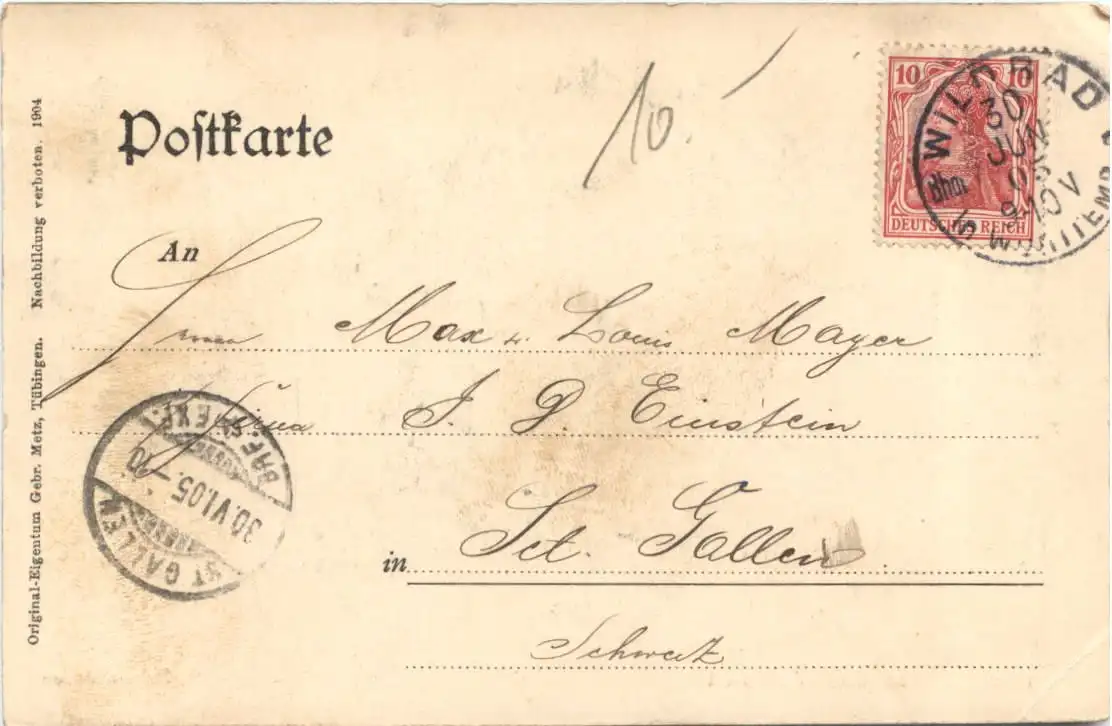 Postkarte
10
10 10
DEUTSCHES REICH
WILDBAD
30 JUN 05
9-10 V
Bhof
WÜRTTEMB.
An
Max u. Louis Mayer
Firma J. D. Einstein
in Sct. Gallen
Schweiz
ST GALLEN
30.VI.05.-10
BRF. EXP.
Original-Eigentum Gebr. Metz, Tübingen. Nachbildung verboten. 1904